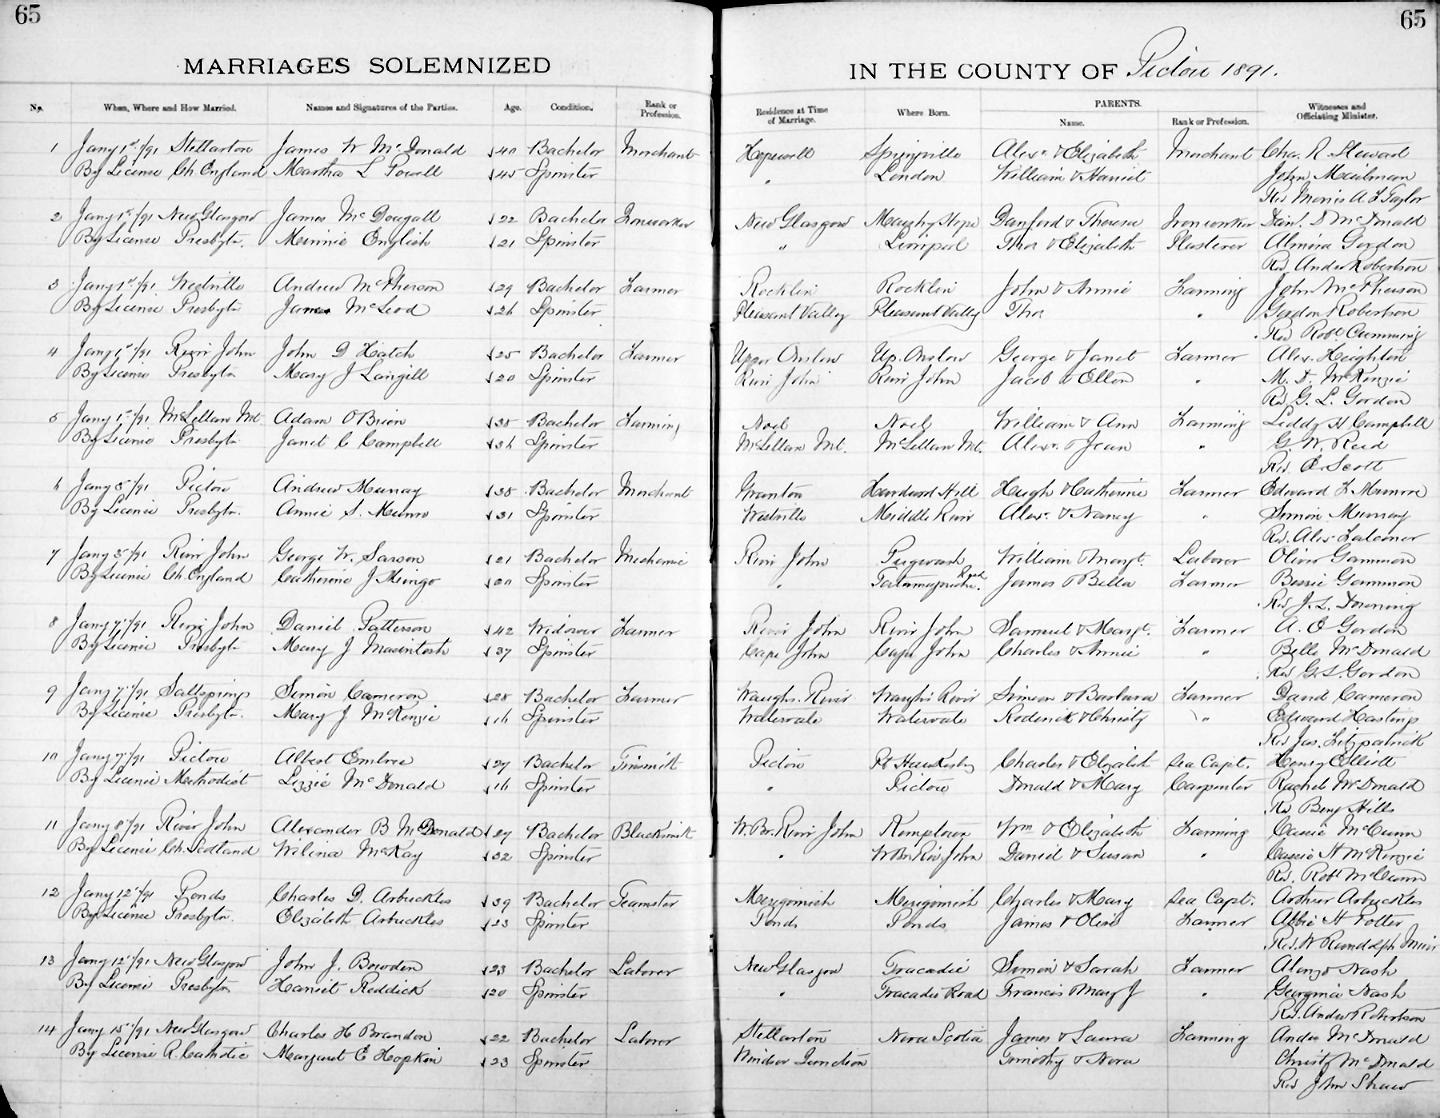 65
65
MARRIAGES SOLEMNIZED
IN THE COUNTY OF Pictou 1891.
No. When, Where and How Married. Names and Signatures of the Parties. Age. Condition. Rank or Profession. Residence at Time of Marriage. Where Born. PARENTS. Name. Rank or Profession. Witnesses and Officiating Minister.
1 Jany 1st/91 Stellarton James W McDonald 40 Bachelor Merchant Hopewell Springville Alexr & Elizabeth Merchant Chas. R. Steward
By License Ch. England Martha L Powell 45 Spinster " London William & Harriet John
Rev Morris A Taylor
2 Jany 1st/91 New Glasgow James McDougall 22 Bachelor Ironworker New Glasgow Danford & Theresa Ironworker Danl. D McDonald
By License Presbytn. Minnie English 21 Spinster " Liverpool Thos & Elizabeth Plasterer Almira Gordon
Rev. Andw Robertson
3 Jany 1st/91 Westville Andrew McPherson 29 Bachelor Farmer Rocklin Rocklin John & Annie Farming John McPherson
By License Presbytn McLeod 26 Spinster Pleasant Valley Pleasant Valley Thos " Gordon Robertson
Rev Robt Cumming
4 Jany 1st/91 River John John D Hatch 25 Bachelor Farmer Upper Onslow Up. Onslow George & Janet Farmer Alex. Heighton
By License Presbytn Mary J Langill 20 Spinster River John River John Jacob & Ellen " M. D. McKenzie
Rev G. L. Gordon
5 Jany 1st/91 McLellan Mt. Adam O'Brien 38 Bachelor Farming Noel Noel William & Ann Farming H Campbell
By License Presbytn Janet C Campbell 36 Spinster McLellan Mt. McLellan Mt. Alexr. & Jean " G. W. Reid
Rev. Scott
6 Jany 3/91 Pictou Andrew Murray 38 Bachelor Merchant Granton Hardwood Hill Hugh & Catherine Farmer Edward Munro
By License Presbytn. Annie S. Munro 31 Spinster Westville Middle River Alexr. & Nancy " Simon Murray
Rev. Alex Falconer
7 Jany 3/91 River John George W. Sarson 21 Bachelor Mechanic River John Pugwash William & Margt. Laborer Oliver Gammon
By License Ch. England Catherine J Mingo 20 Spinster " Tatamagouche Road James & Bella Farmer Bessie Gammon
Rev J. L. Downing
8 Jany 7/91 River John Daniel Patterson 42 Widower Farmer River John River John Samuel & Margt. Farmer A. O Gordon
By License Presbytn Mary J Macintosh 37 Spinster Cape John Cape John Charles & Annie " Belle McDonald
Rev G. L. Gordon
9 Jany 7/91 Saltsprings Simon Cameron 28 Bachelor Farmer Waugh's River Waugh's River Simeon & Barbara Farmer David Cameron
By License Presbytn. Mary J McKenzie 16 Spinster Watervale Watervale Roderick & Christy " Edward Hastings
Rev Jas. Fitzpatrick
10 Jany 7/91 Pictou Albert Embree 27 Bachelor Tinsmith Pictou Pt Hawkesby Charles & Elizabeth Sea Capt. Henry Elliott
By License Methodist Lizzie McDonald 16 Spinster " Pictou Donald & Mary Carpenter Rachel McDonald
Rev Benj Hills
11 Jany 8/91 River John Alexander B McDonald 27 Bachelor Blacksmith W. Br. River John Kemptown Wm & Elizabeth Farming Cassie McCunn
By License Ch. Scotland Wilina McKay 32 Spinster " W Br Riv John Daniel & Susan " Cassie H McKenzie
Rev. Robt McCunn
12 Jany 12/91 Ponds Charles D. Arbuckles 39 Bachelor Teamster Merigomish Merigomish Charles & Mary Sea Capt. Arthur Arbuckles
By License Presbytn. Elizabeth Arbuckles 23 Spinster Ponds Ponds James & Olive Farmer Abbie H Potter
Rev. W Rundolph
13 Jany 12/91 New Glasgow John J. Bowden 23 Bachelor Laborer New Glasgow Tracadie Simon & Sarah Farmer Alonzo Nash
By License Presbytn Harriet Reddick 20 Spinster " Tracadie Road Francis & Mary J " Georgina Nash
Rev. Andw Robertson
14 Jany 15/91 New Glasgow Charles H Brandon 22 Bachelor Laborer Stellarton Nova Scotia James & Laura Farming McDonald
By License R. Catholic Margaret C Hopkin 23 Spinster Windsor Junction Timothy & Nora Christy McDonald
Rev John Shaw